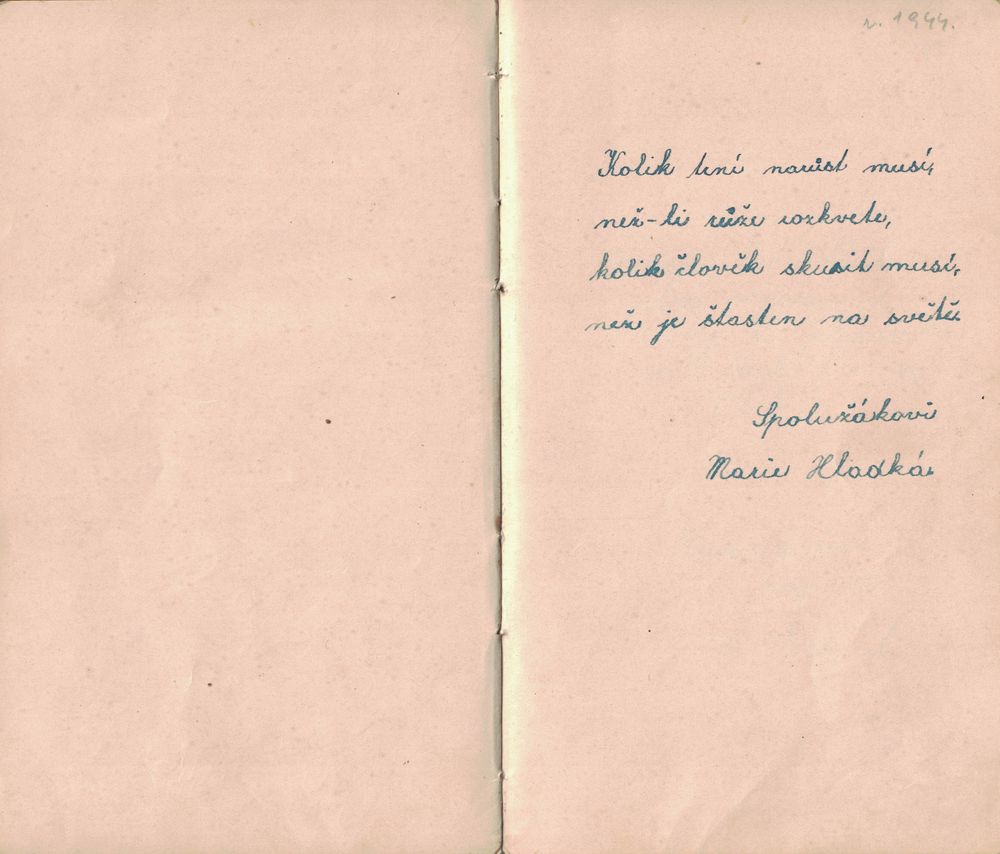 r. 1944.
Kolik trní narůst musí,
než-li růže rozkvete,
kolik člověk skusit musí,
než je štasten na světě.
Spolužákovi
Marie Hladká.